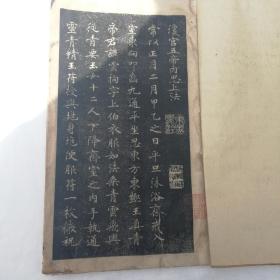 凌宫五帝内思上法
常以正月二月甲乙之日平旦沐浴斋戒入
室東向叩齒九通平坐思東方東極玉真青
帝君諱雲拘字上伯衣服如法乘青雲飛輿
從青要玉女十二人下降齋室之内手執通
靈青精玉符授與地身地便服符一枚微祝